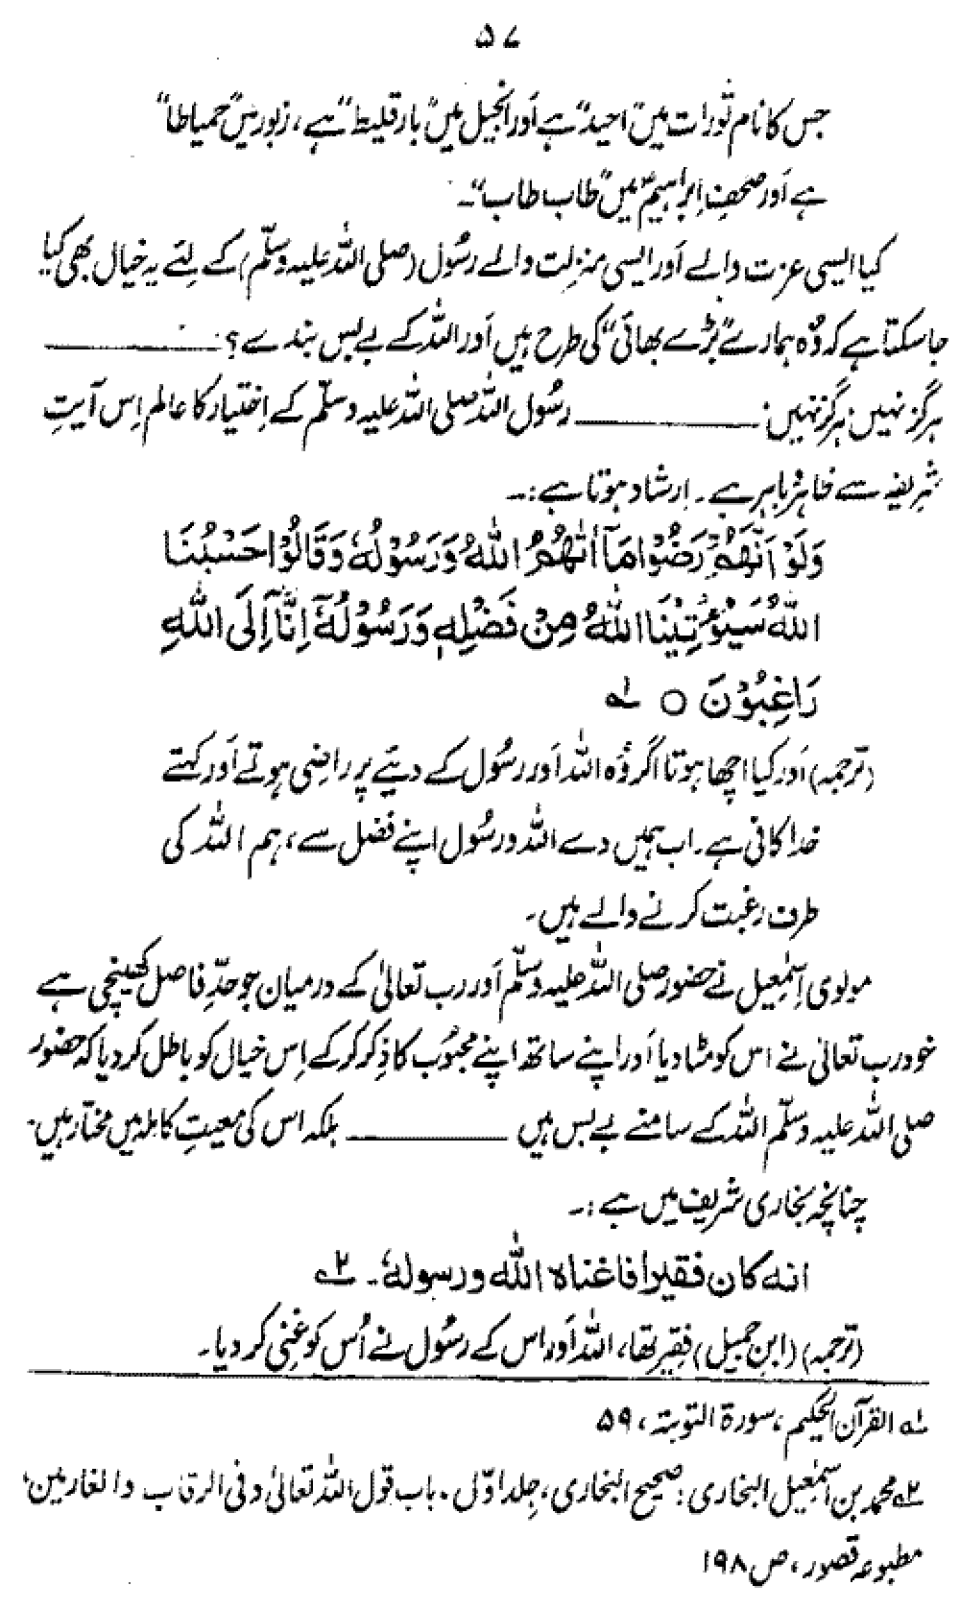 ۵۷
جس کا نام تورات میں "احید" ہے اَور انجیل میں "بارقلیط" ہے، زبور میں "حمیاطا"
ہے اَور صحفِ اِبراہیمؑ میں "طاب طاب"۔
کیا ایسی عزت والے اَور ایسی منزلت والے رسُول (صلی اللہ علیہ وسلّم) کے لِئے یہ خیال بھی کیا
جا سکتا ہے کہ وُہ ہمارے "بڑے بھائی" کی طرح ہیں اَور اللہ کے بے بس بندے؟ ـــــــــــــ
ہرگز نہیں! ہرگز نہیں! ـــــــــــــ رسُول اللہ صلی اللہ علیہ وسلّم کے اِختیار کا عالم اِس آیتِ
شریفہ سے ظاہر باہر ہے۔ اِرشاد ہوتا ہے:۔
وَلَوْ اَنَّهُمْ رَضُوْا مَآ اٰتٰهُمُ اللّٰهُ وَرَسُوْلُهٗ وَقَالُوْا حَسْبُنَا
اللّٰهُ سَيُؤْتِيْنَا اللّٰهُ مِنْ فَضْلِهٖ وَرَسُوْلُهٗٓ اِنَّآ اِلَى اللّٰهِ
رَاغِبُوْنَ ○ ۱؎
(ترجمہ) اَور کیا اچھا ہوتا اگر وُہ اللہ اَور رسُول کے دیئے پر راضی ہوتے اَور کہتے
خدا کافی ہے۔ اب ہمیں دے اللہ و رسُول اپنے فضل سے، ہم اللہ کی
طرف رغبت کرنے والے ہیں۔
مولوی اِسمٰعیل نے حضور صلی اللہ علیہ وسلّم اَور رب تعالیٰ کے درمیان جو حدِّ فاصل کھینچی ہے
خود رب تعالیٰ نے اس کو مٹا دیا اَور اپنے ساتھ اپنے محبُوب کا ذِکر کر کے اِس خیال کو باطل کر دیا کہ حضور
صلی اللہ علیہ وسلّم اللہ کے سامنے بے بس ہیں ـــــــــــــ بلکہ اس کی معیتِ کاملہ میں مختار ہیں۔
چنانچہ بخاری شریف میں ہے:۔
انه كان فقيرا فاغناه الله ورسوله۔ ۲؎
(ترجمہ) (ابنِ جمیل) فقیر تھا، اللہ اَور اس کے رسُول نے اُس کو غنی کر دیا۔
۱؎ القرآن الحکیم، سورۃ التوبتہ، ۵۹
۲؎ محمد بن اسمٰعیل البخاری: صحیح البخاری، جلد اوّل۔ باب قول اللہ تعالیٰ وفی الرقاب والغارمین،
مطبوعہ قصور، ص ۱۹۸